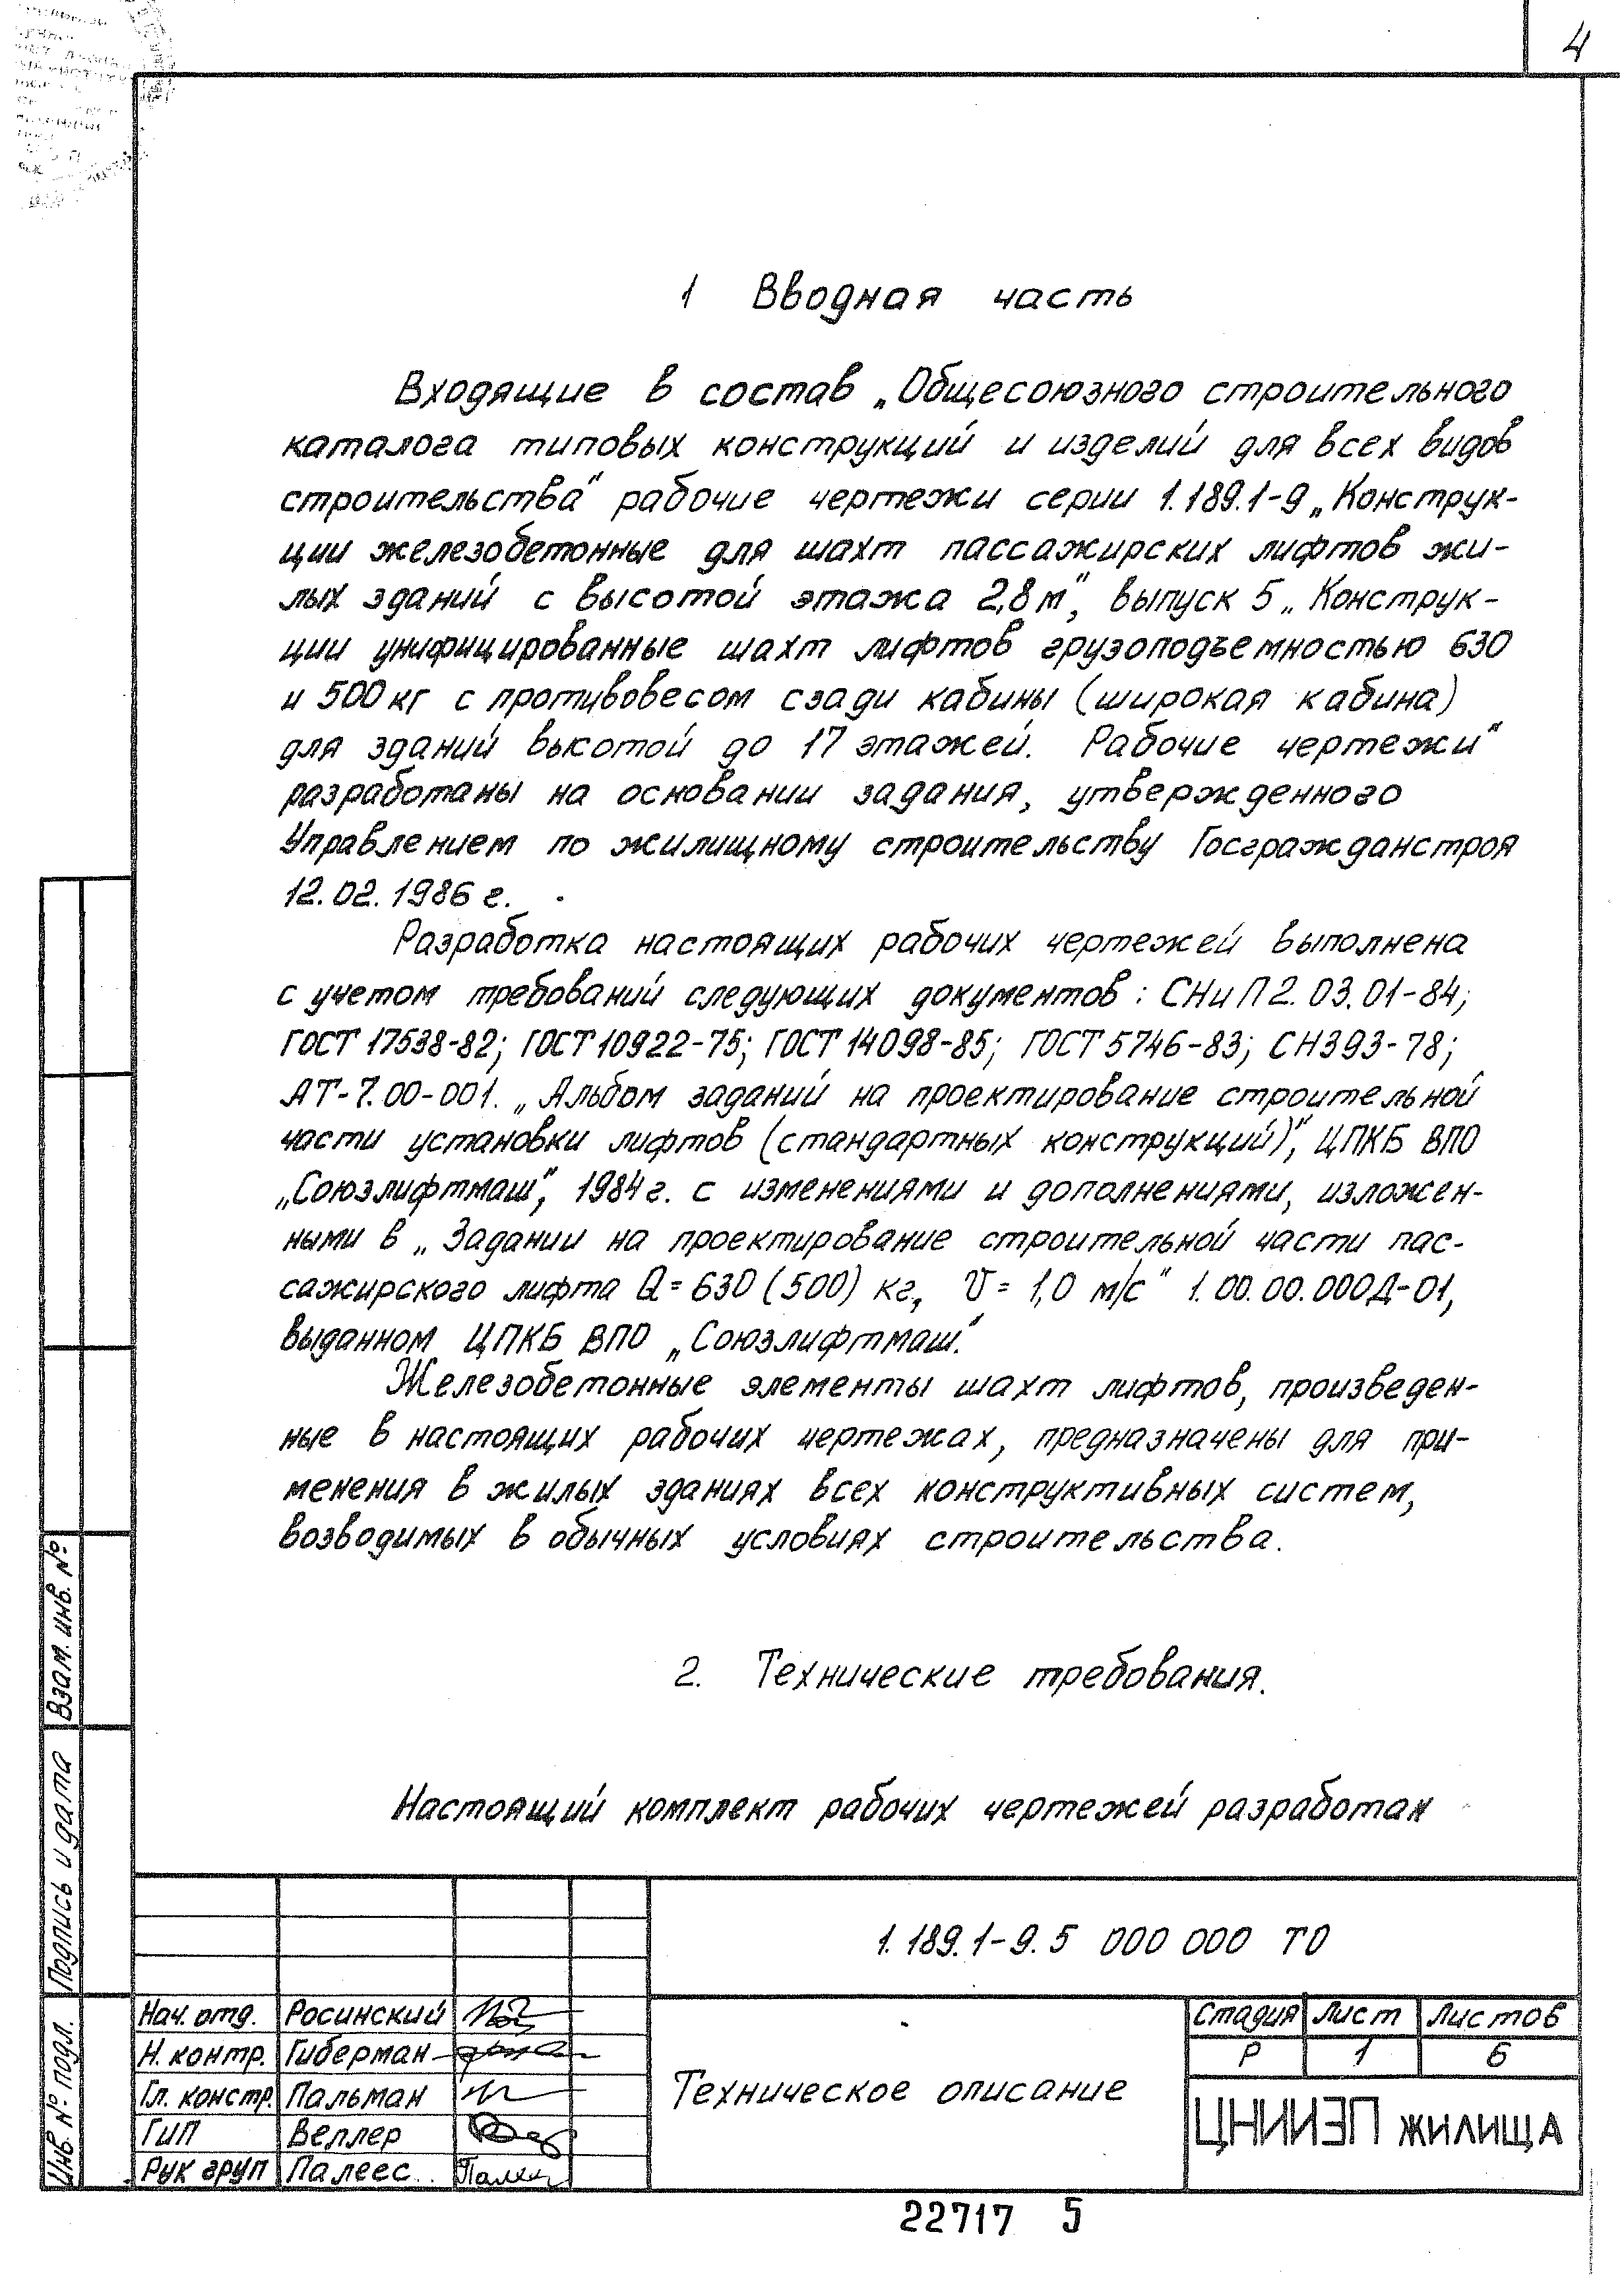 4
1 Вводная часть
Входящие в состав „Общесоюзного строительного
каталога типовых конструкций и изделий для всех видов
строительства" рабочие чертежи серии 1.189.1-9 „Конструк-
ции железобетонные для шахт пассажирских лифтов жи-
лых зданий с высотой этажа 2,8 м", выпуск 5 „Конструк-
ции унифицированные шахт лифтов грузоподъемностью 630
и 500 кг с противовесом сзади кабины (широкая кабина)
для зданий высотой до 17 этажей. Рабочие чертежи"
разработаны на основании задания, утвержденного
Управлением по жилищному строительству Госгражданстроя
12.02.1986 г.
Разработка настоящих рабочих чертежей выполнена
с учетом требований следующих документов: СНиП 2.03.01-84;
ГОСТ 17538-82; ГОСТ 10922-75; ГОСТ 14098-85; ГОСТ 5746-83; СН393-78;
АТ-7.00-001. „Альбом заданий на проектирование строительной
части установки лифтов (стандартных конструкций)", ЦПКБ ВПО
„Союзлифтмаш", 1984 г. с изменениями и дополнениями, изложен-
ными в „Задании на проектирование строительной части пас-
сажирского лифта Q = 630 (500) кг, V = 1,0 м/с" 1.00.00.000Д-01,
выданном ЦПКБ ВПО „Союзлифтмаш".
Железобетонные элементы шахт лифтов, произведен-
ные в настоящих рабочих чертежах, предназначены для при-
менения в жилых зданиях всех конструктивных систем,
возводимых в обычных условиях строительства.
2. Технические требования.
Настоящий комплект рабочих чертежей разработан
Взам. инв. №
Подпись и дата
Инв. № подл.
1.189.1-9.5 000 000 ТО
Нач. отд. Росинский
Н. контр. Гиберман
Гл. констр. Пальман
ГИП Веллер
Рук груп Палеес
Техническое описание
Стадия Лист Листов
Р 1 6
ЦНИИЭП ЖИЛИЩА
22717 5